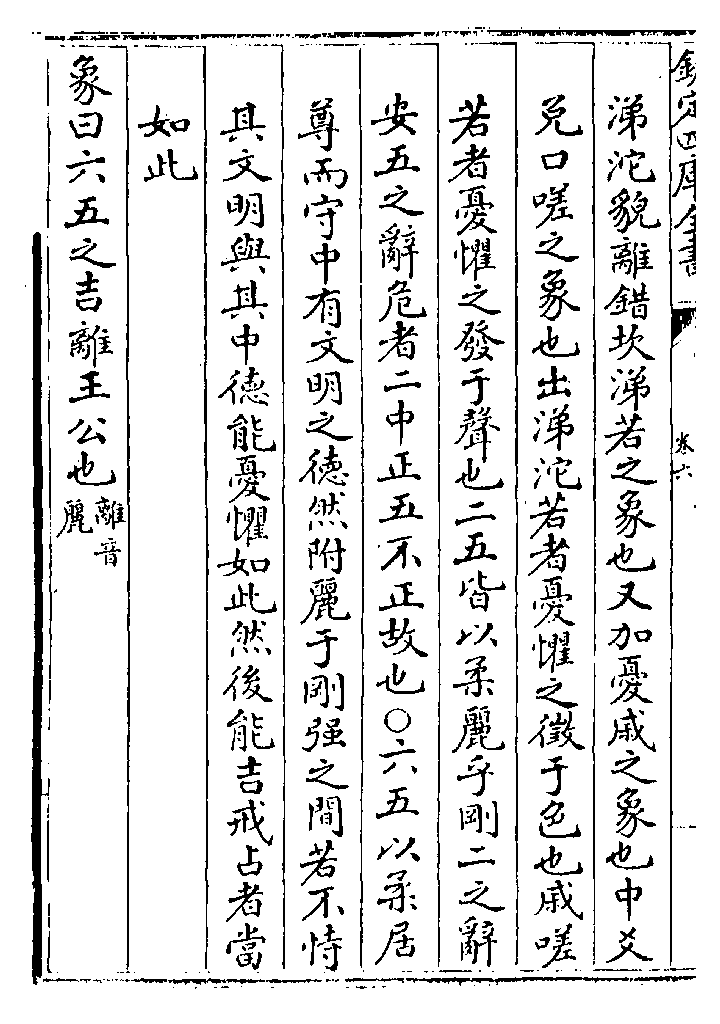 欽定四庫全書
卷六
涕沱貌離錯坎涕若之象也又加憂戚之象也中爻
兌口嗟之象也出涕沱若者憂懼之徵于色也戚嗟
若者憂懼之發于聲也二五皆以柔麗乎剛二之辭
安五之辭危者二中正五不正故也○六五以柔居
尊而守中有文明之德然附麗于剛强之間若不恃
其文明與其中德能憂懼如此然後能吉戒占者當
如此
象曰六五之吉離王公也離音
麗